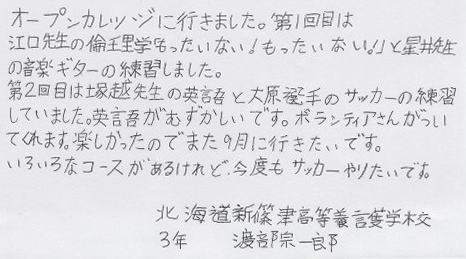 オープンカレッジに行きました。第1回目は
江口先生の倫理学「もったいない！もったいない！」と星井先生
の音楽ギターの練習しました。
第2回目は塚越先生の英言吾と大原選手のサッカーの練習
していました。英言吾がむずかしいです。ボランティアさんがつい
てくれます。楽しかったのでまた9月に行きたいです。
いろいろなコースがあるけれど、今度もサッカーやりたいです。
北海道新篠津高等養護学校
3年 渡部宗一郎